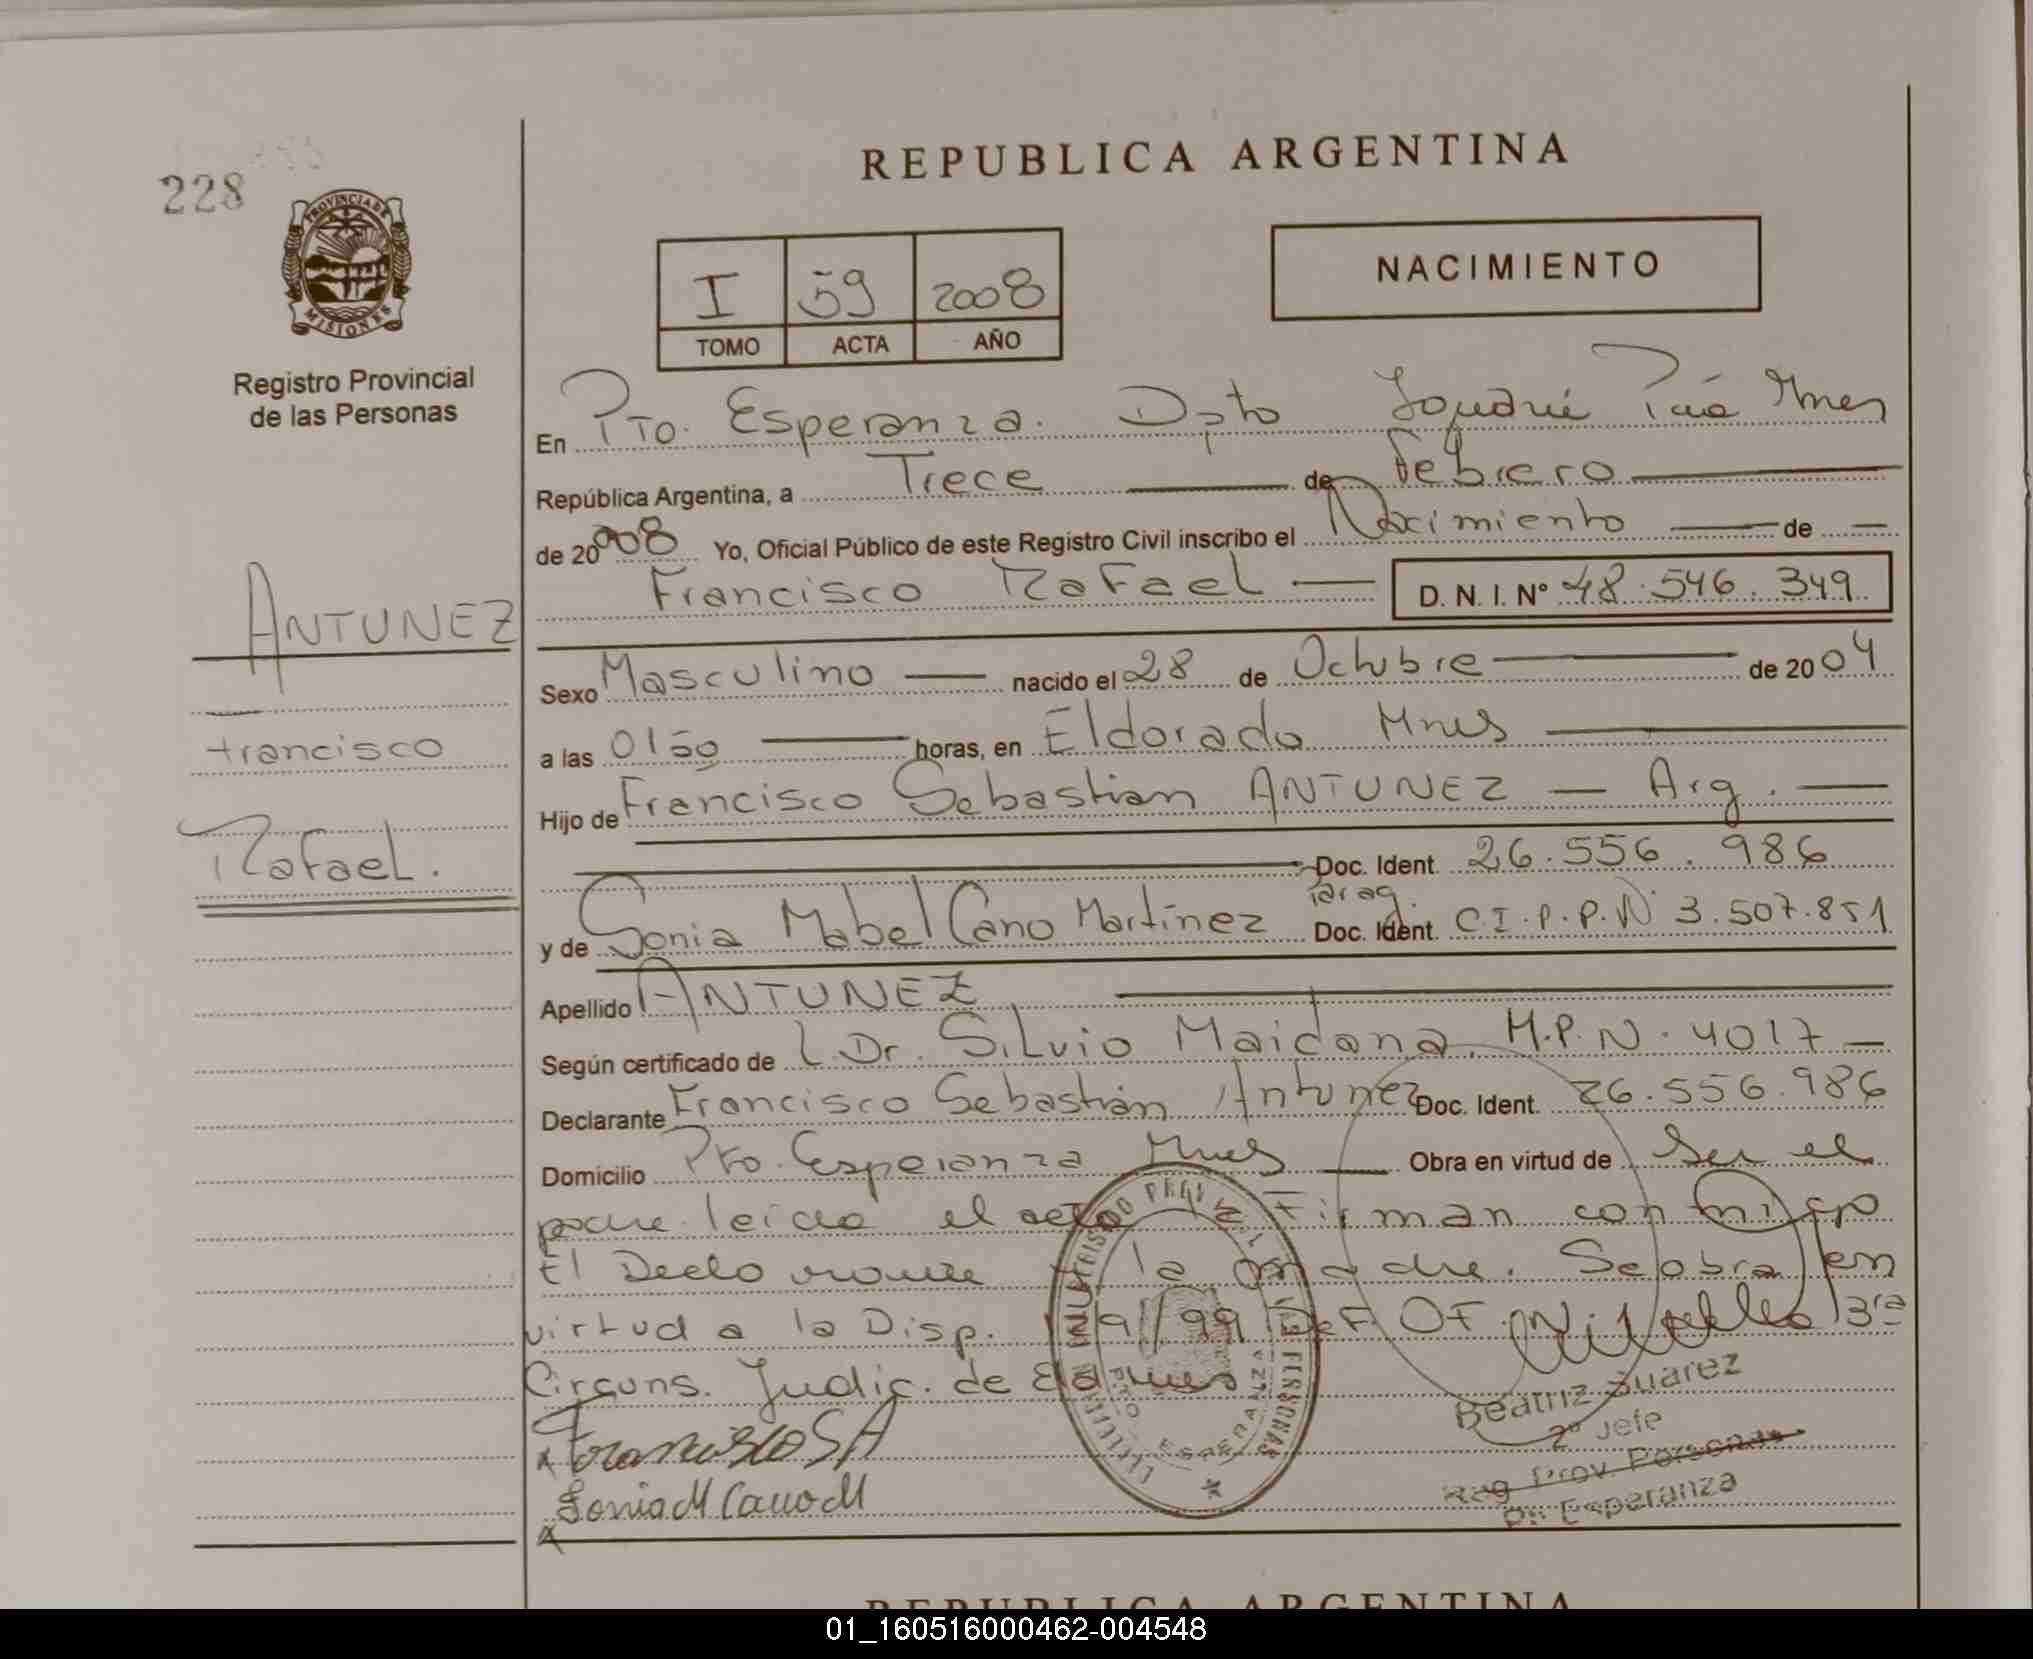 REPUBLICA ARGENTINA
228
PROVINCIA DE
MISIONES
Registro Provincial
de las Personas
I 59 2008
TOMO ACTA AÑO
NACIMIENTO
ANTUNEZ
Francisco
Rafael.
En Pto. Esperanza. Dpto Mnes
República Argentina, a Trece de Febrero
de 2008 Yo, Oficial Público de este Registro Civil inscribo el Nacimiento de
Francisco Rafael D. N. I. Nº 48.546.349
Sexo Masculino nacido el 28 de Octubre de 2004
a las 0150 horas, en Eldorado Mnes
Hijo de Francisco Sebastian ANTUNEZ — Arg.
Doc. Ident. 26.556.986
Parag.
y de Sonia Mabel Cano Martínez Doc. Ident. C.I.P.P.N 3.507.851
Apellido ANTUNEZ
Según certificado de Dr. Silvio Maidana. M.P.N. 4017 —
Declarante Francisco Sebastián Antunez Doc. Ident. 26.556.986
Domicilio Pto. Esperanza Mnes Obra en virtud de Ser el
padre leida el acta Firman conmigo
El la madre. Se obra en
virtud a la Disp. /99 Def. OF. 3ra
Circuns. Judic. de Eld Mnes
Francisco S A
Sonia M Cano M
PERSONAS
ESPERANZA
Beatriz Suarez
2º Jefe
Reg Prov. Personas
Pto Esperanza
REPUBLICA ARGENTINA
01_160516000462-004548